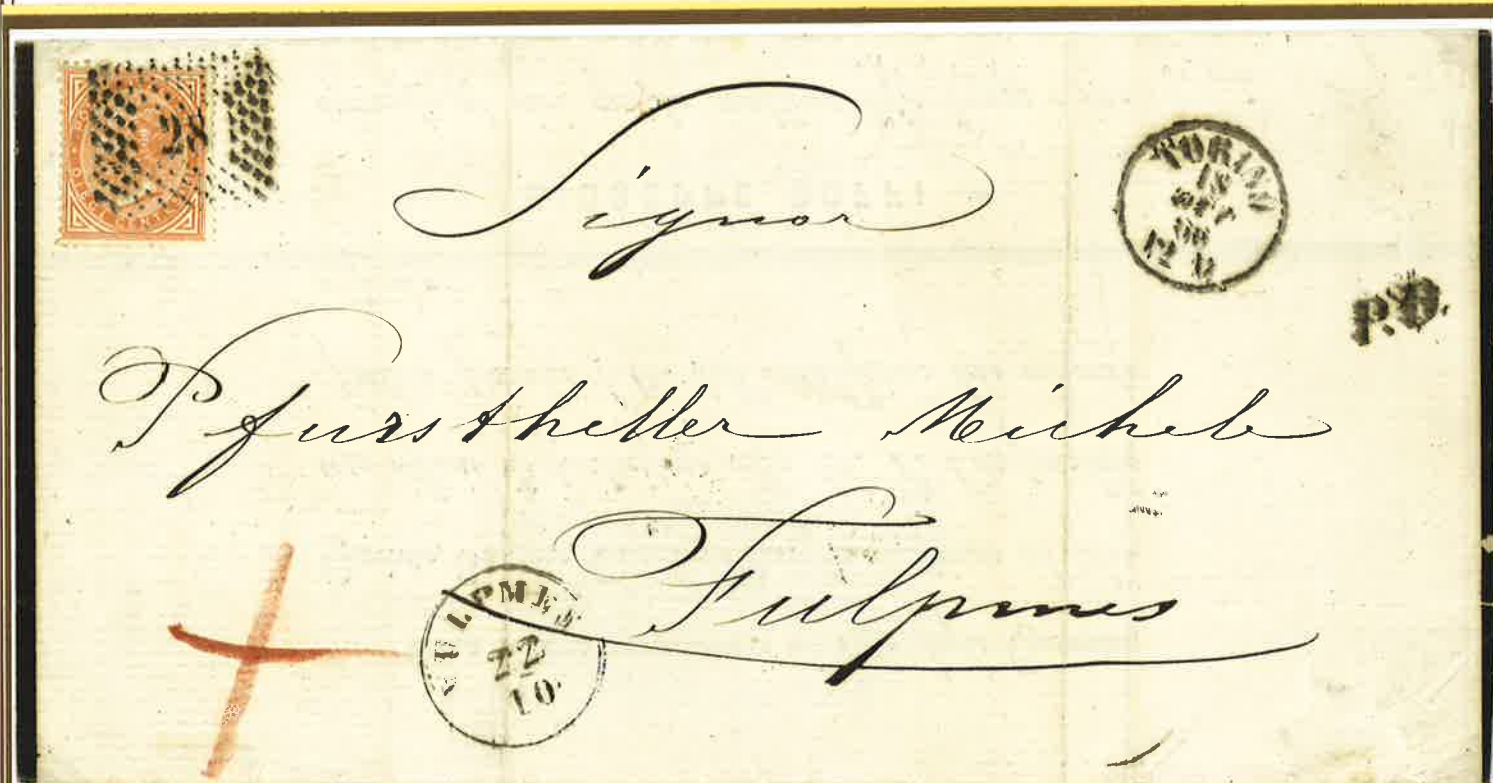 28
Signor
TORINO
18
OTT
66
12 M
P.D.
Pfurstheller Michele
Fulpmes
FULPMES
22
10.